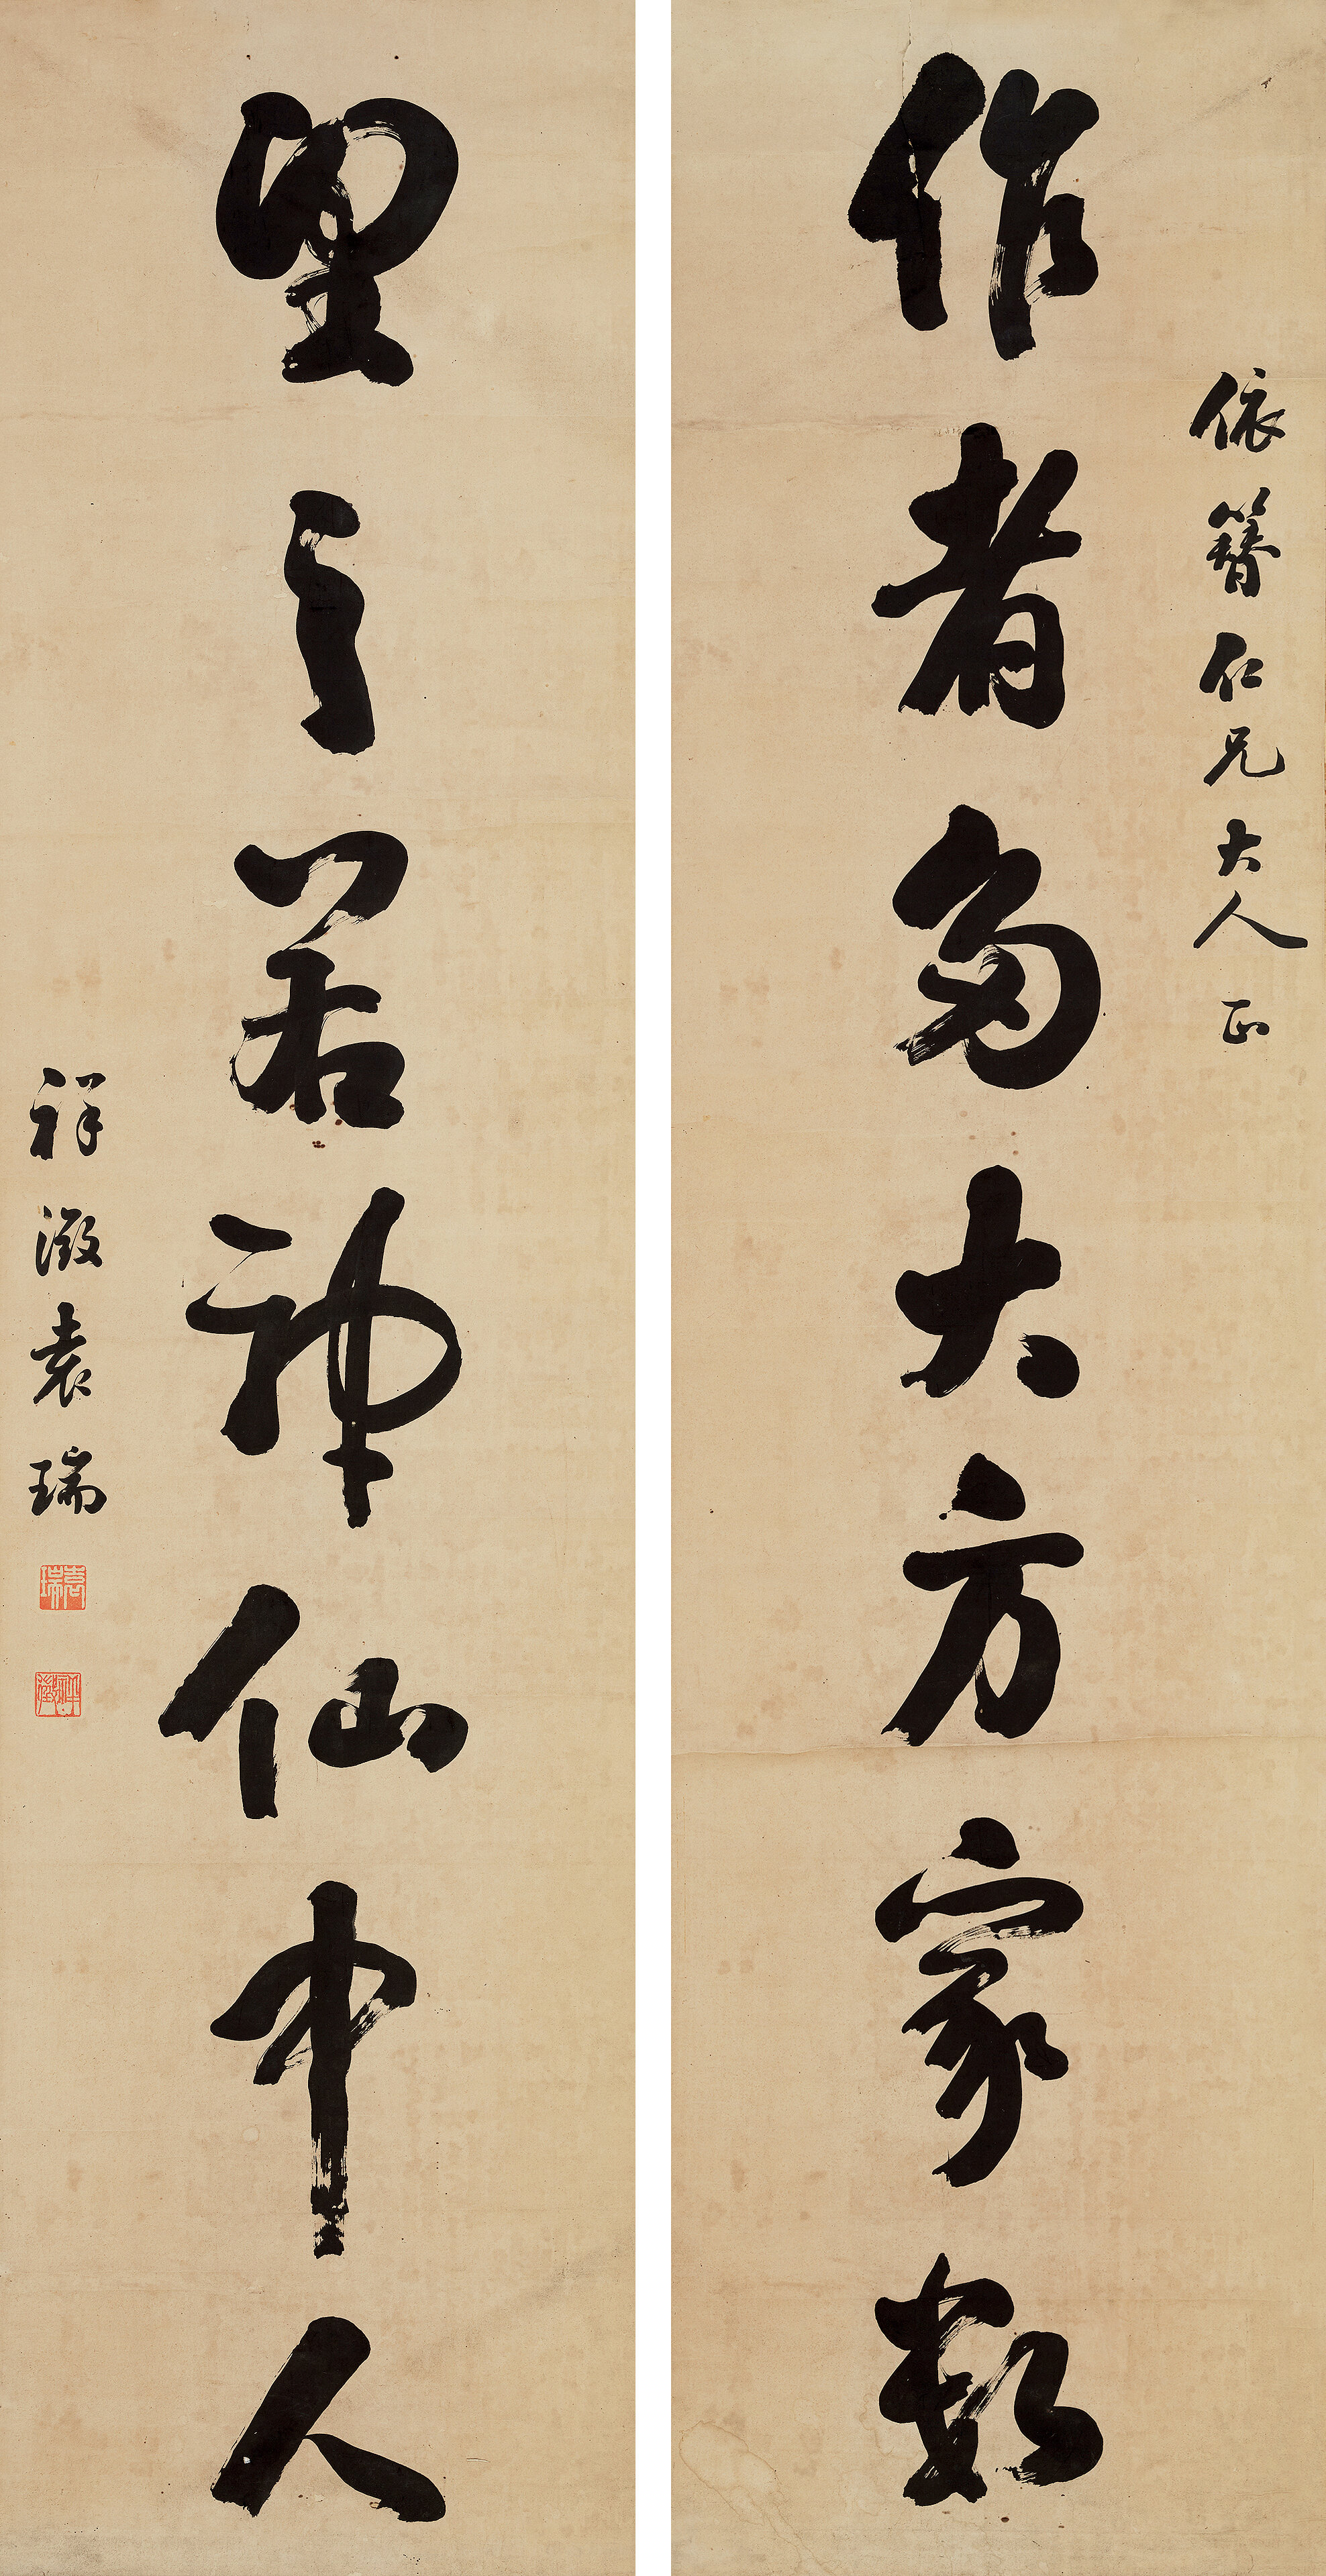 依簪仁兄大人正
作者大方家數
望之若神仙中人
祥澂袁瑞
袁瑞